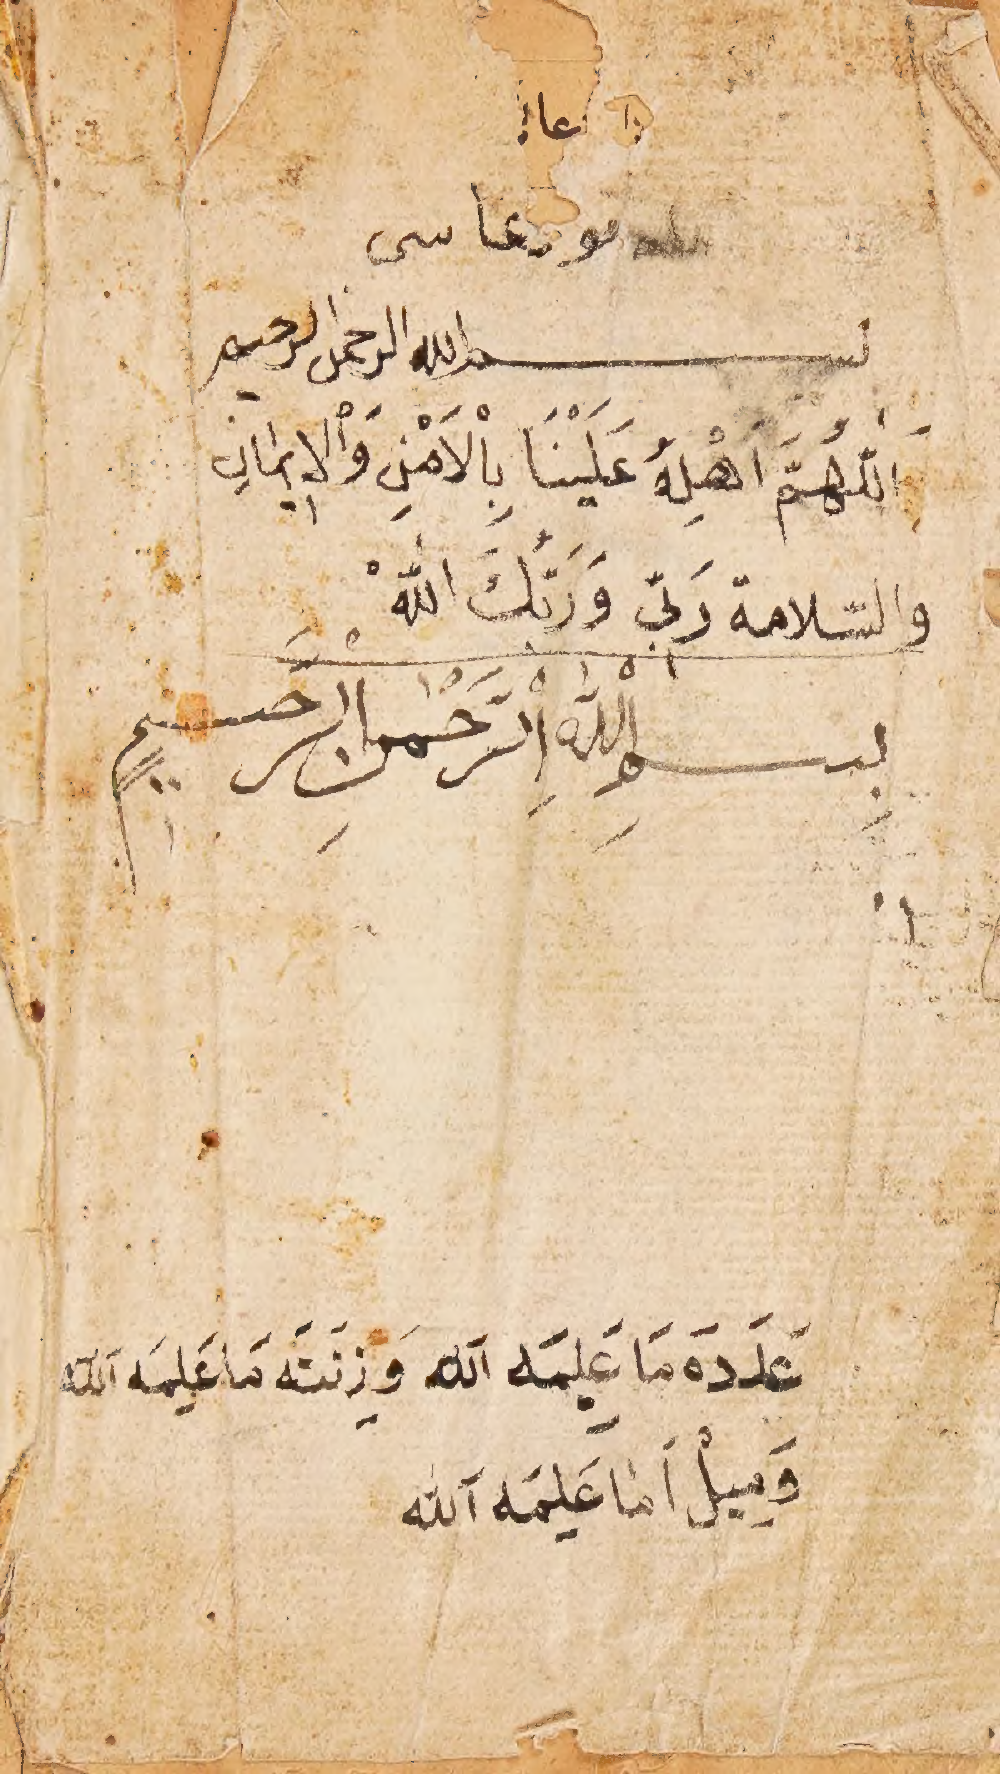 دعاسى
بسم الله الرحمن الرحيم
اَللّٰهُمَّ اَهْلِهُ عَلَيْنَا بِاْلاَمْنِ وَاْلاِيمَانِ
والسّلامة رَبّى وَرَبُّكَ اللّٰهْ
بِسْمِ اللّٰهِ اِلرَّحْمٰنِ الرَّحِيمِ
عَدَدَه مَا عَلِيمَه اَلله وَزِنَتَه مَا عَلِيمَه اَلله
وَمِيلْ أَمٰا عَلِيمَه اَلله